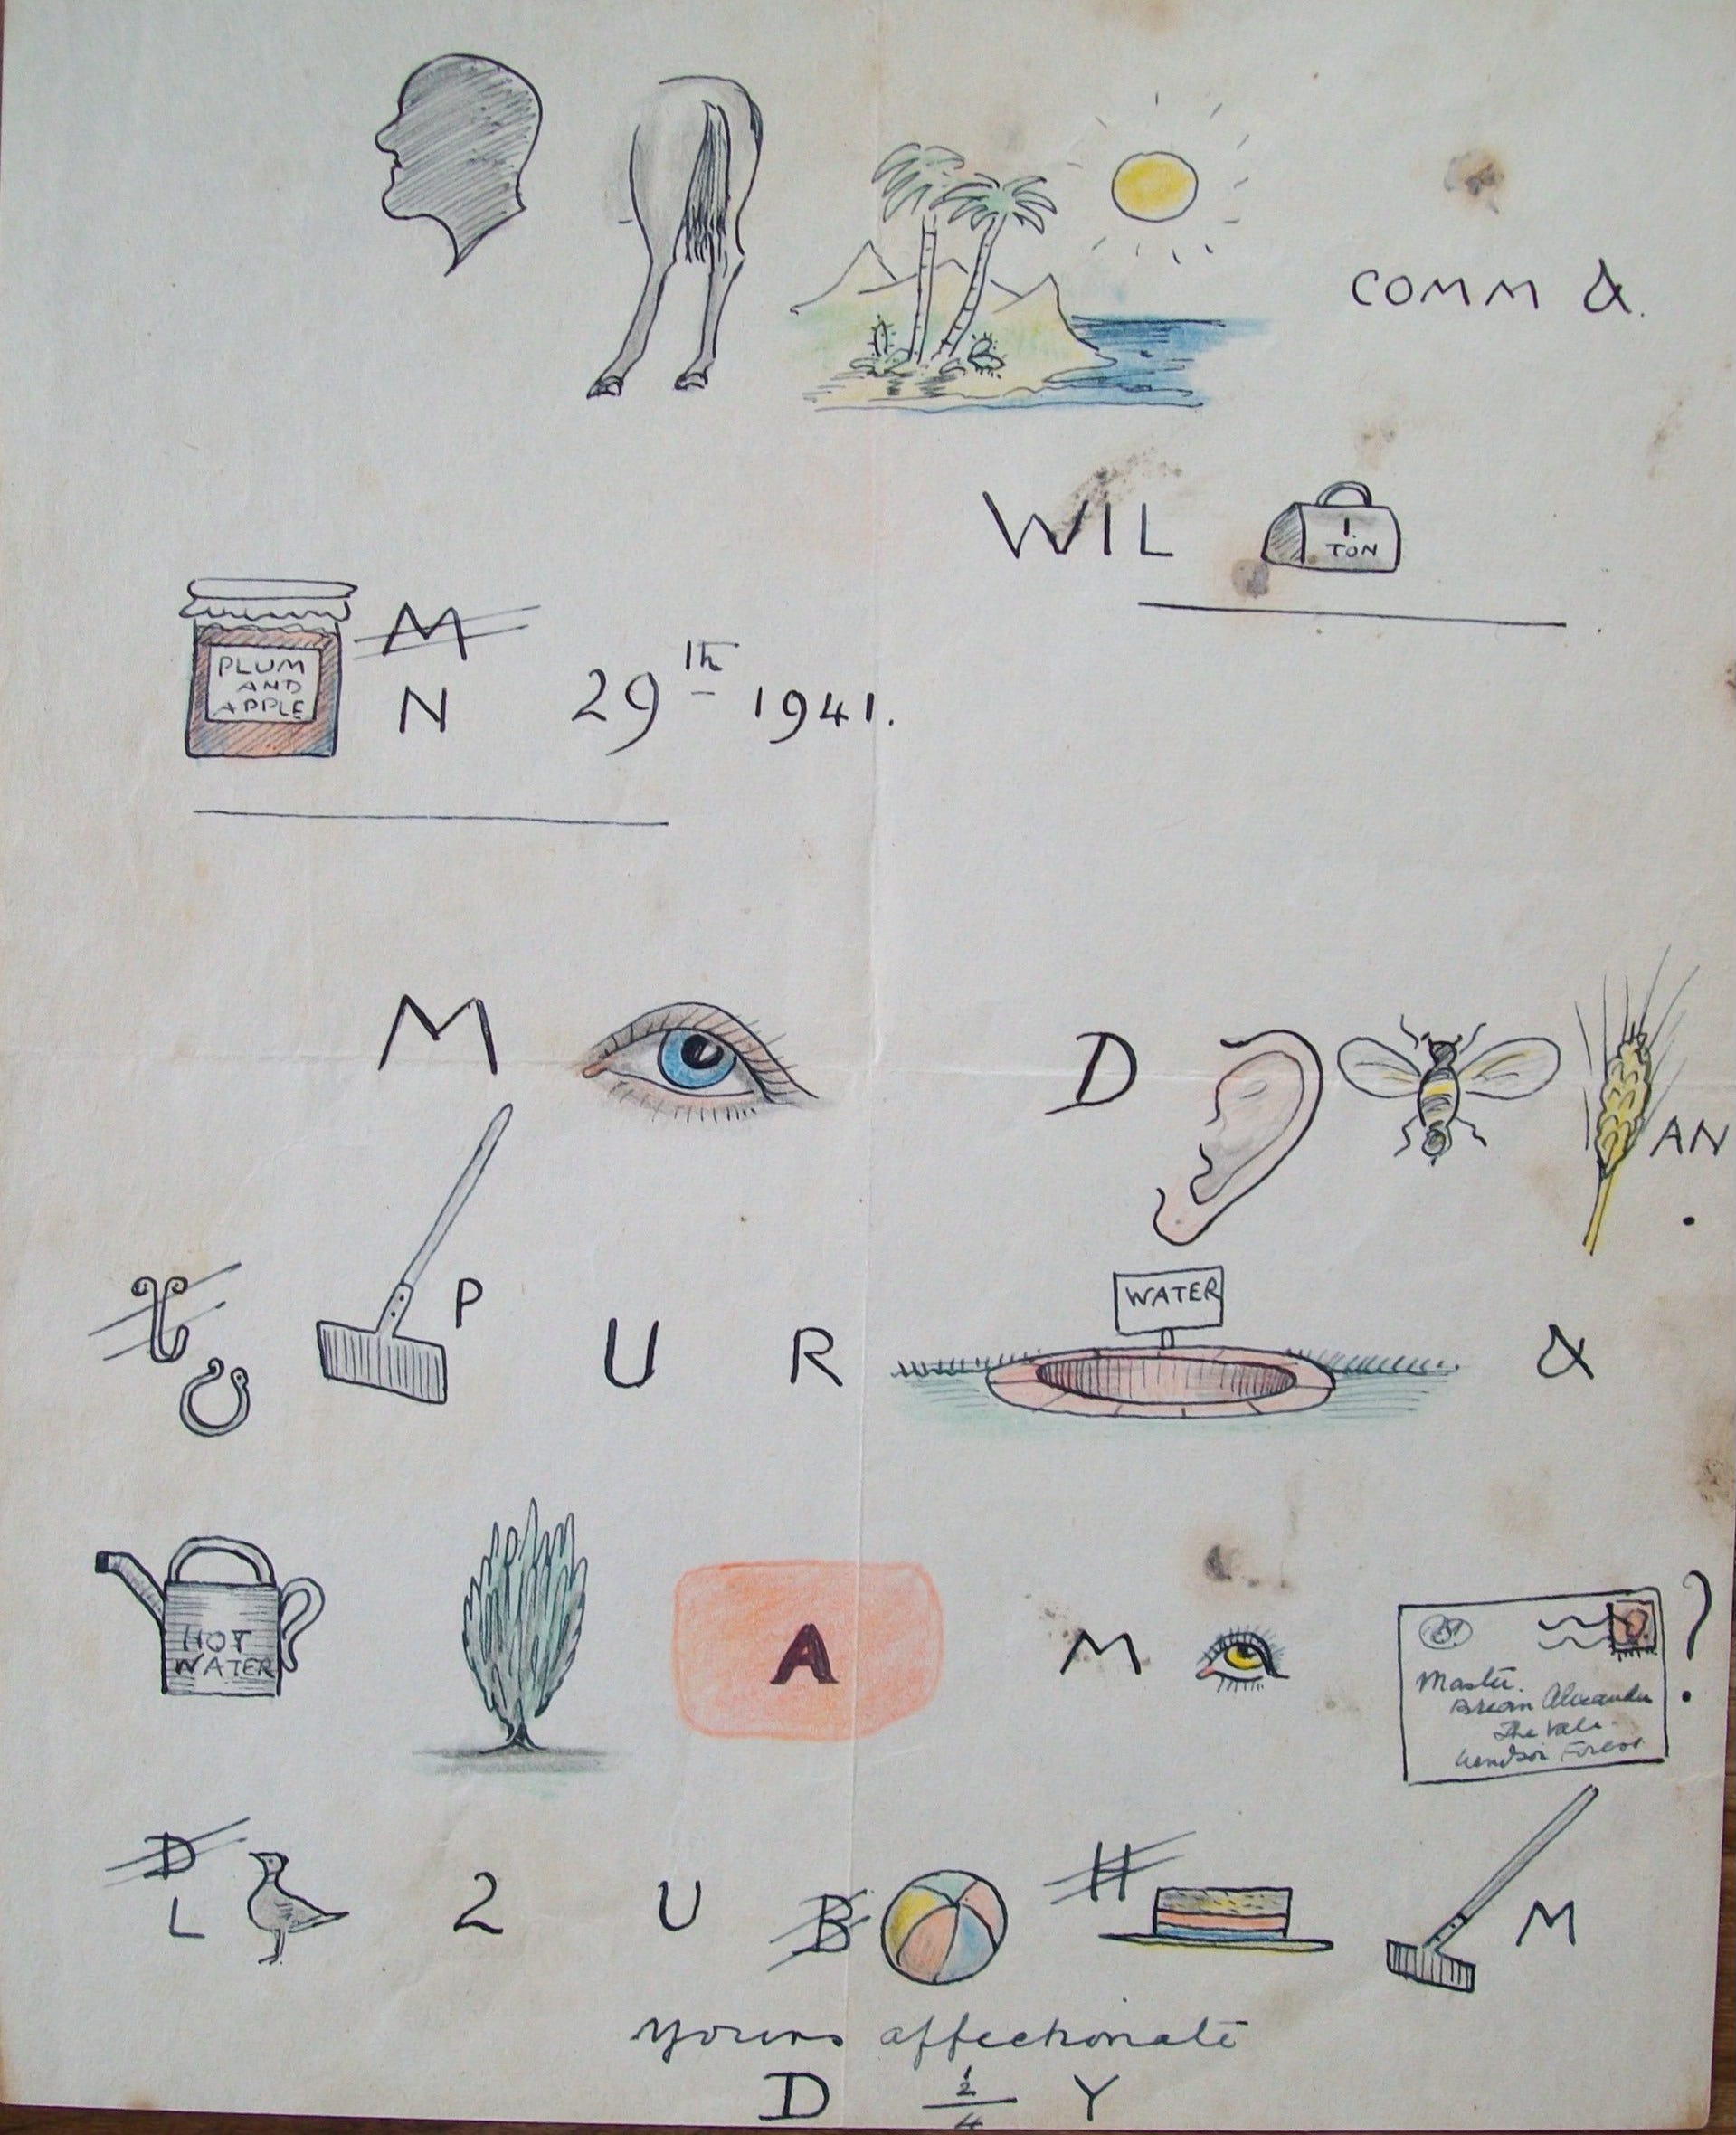 COMM &.
WIL 1 TON
PLUM AND APPLE M
N 29th 1941.
M D AN.
P U R WATER &
HOT WATER A M ?
Master.
Brian Alexander
The Vale.
Windsor Forest
D
L 2 U B H M
yours affectionate
D ½/4 Y